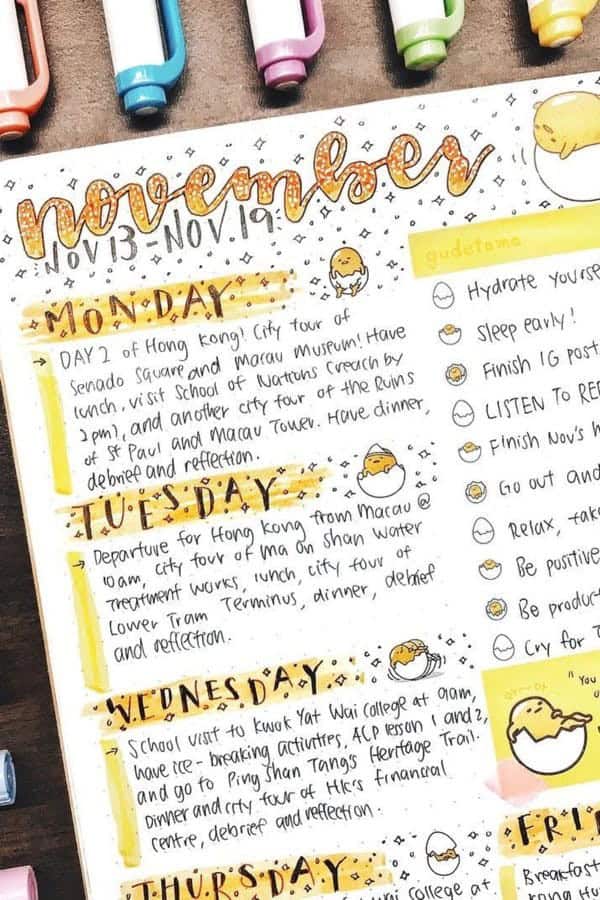 november
NOV 13 - NOV 19
MONDAY
→ DAY 2 of Hong Kong! City tour of
Senado Square and Macau Museum! Have
lunch, visit School of Nations (reach by
2pm), and another city tour of the Ruins
of St Paul and Macau Tower. Have dinner,
debrief and reflection.
TUESDAY
→ Departure for Hong Kong from Macau @
10am, city tour of Ma On Shan Water
Treatment Works, lunch, city tour of
Lower Tram Terminus, dinner, debrief
and reflection.
WEDNESDAY
→ School visit to Kwok Yat Wai College at 9am,
have ice-breaking activities, ACP lesson 1 and 2,
and go to Ping Shan Tang's Heritage Trail.
Dinner and city tour of HK's Financial
centre, debrief and reflection.
THURSDAY
Wai College at
gudetama
Hydrate yourse
Sleep early!
Finish IG post
LISTEN TO RE
Finish Nov's h
Go out and
Relax, tak
Be positive
Be produc
Cry for T
"You
FRI
Breakfast